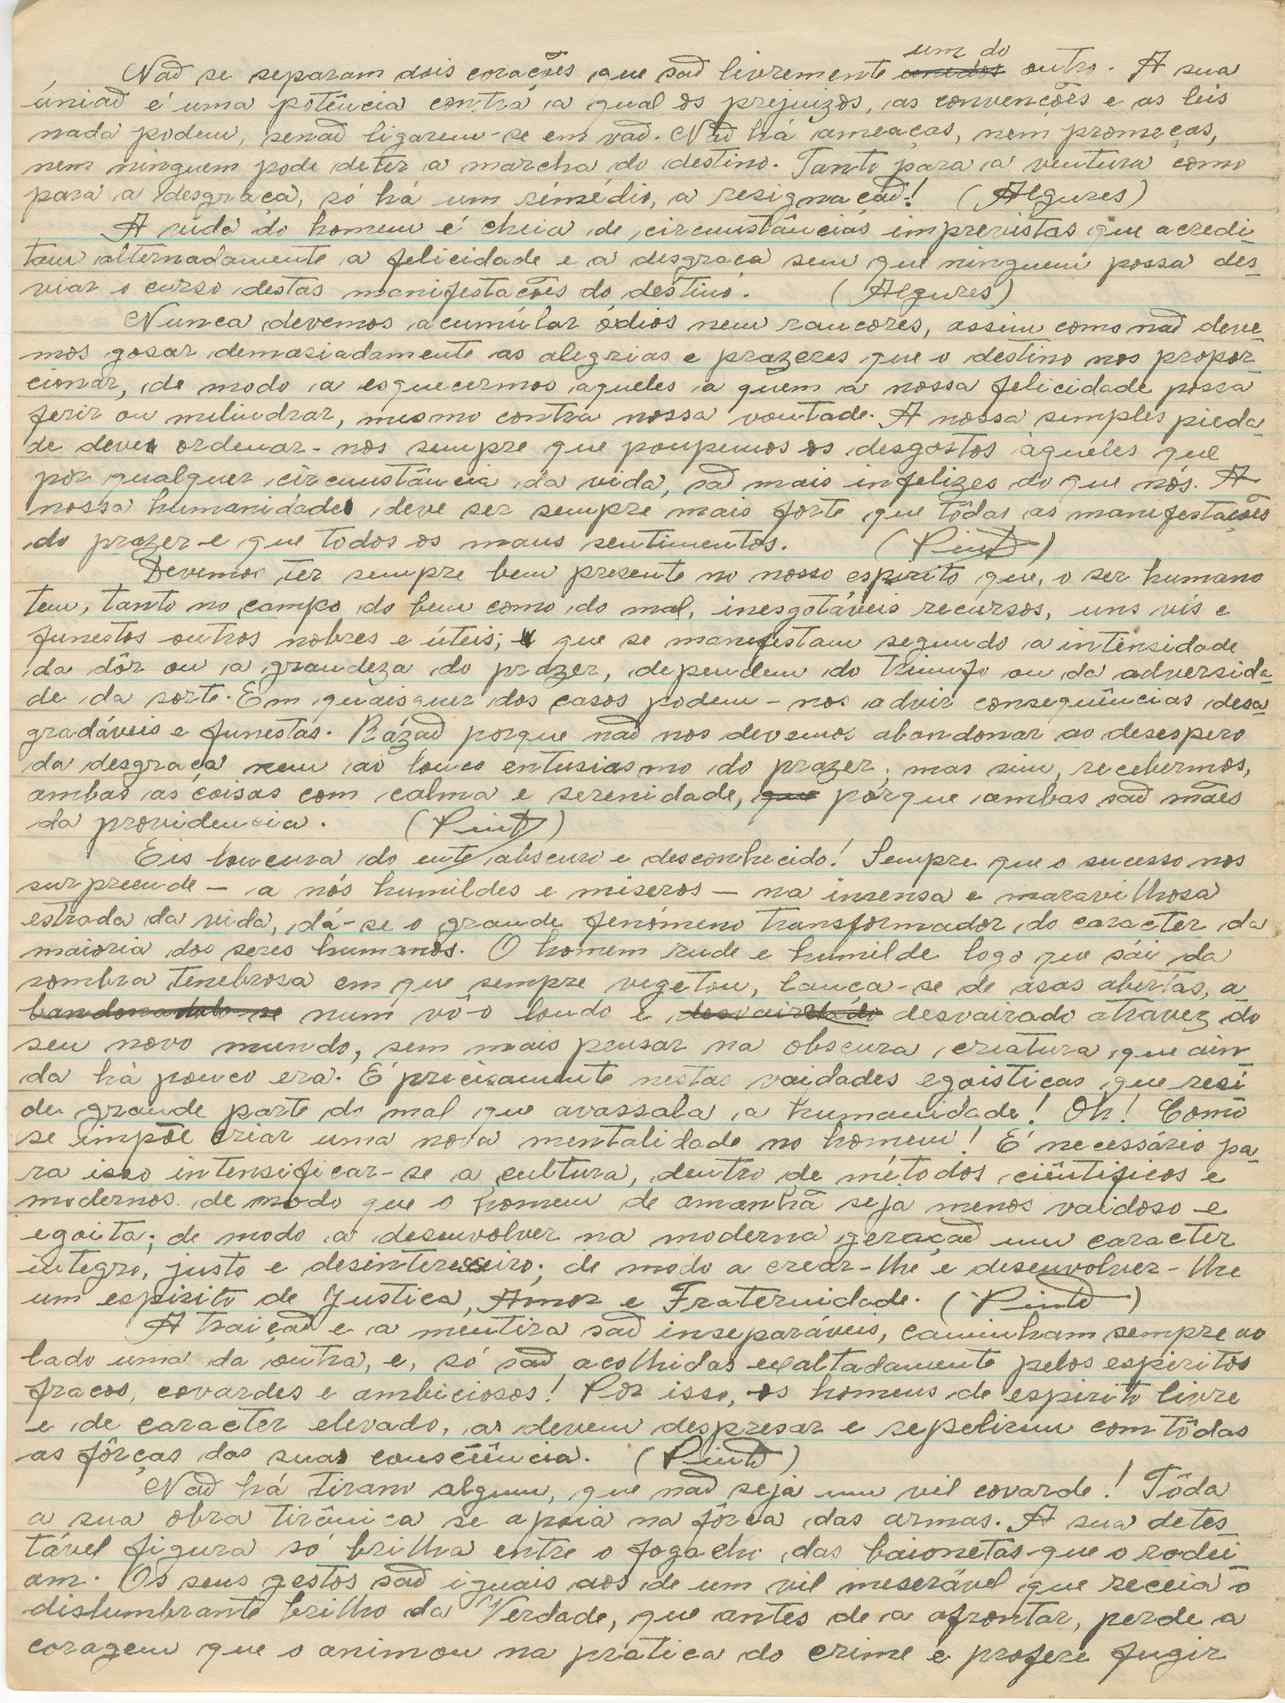 Não se separam dois corações que são livremente um do outro. A sua
únião é uma potência contra a qual os prejuizos, as convenções e as leis
nada podem, senão ligarem-se em vão. Não há ameaças, nem promeças,
nem ninguem pode deter a marcha do destino. Tanto para a ventura como
para a desgraça, só há um rémédio, a resignação! (Algures)
A vida do homem é cheia de circunstâncias imprevistas que acredi
tam alternadamente a felicidade e a desgraça sem que ninguem possa des-
viar o curso destas manifestações do destino. (Algures)
Nunca devemos acumular ódios nem rancores, assim como não deve-
mos gosar demasiadamente as alegrias e prazeres que o destino nos propor-
cionar, de modo a esquecermos aqueles a quem a nossa felicidade possa
ferir ou melindrar, mesmo contra nossa vontade. A nossa simples pieda-
de deve ordenar-nos sempre que poupemos os desgostos àqueles que
por qualquer circunstância da vida, são mais infelizes do que nós. A
nossa humanidade deve ser sempre mais forte que tôdas as manifestações
do prazer e que todos os maus sentimentos. (Pinto)
Devemos ter sempre bem presente no nosso espirito que, o ser humano
tem, tanto no campo do bem como do mal, inesgotáveis recursos, uns vis e
funestos outros nobres e úteis; que se manifestam segundo a intensidade
da dôr ou a grandeza do prazer, dependem do triunfo ou da adversida-
de da sorte. Em quaisquer dos casos podem-nos advir consequências desa-
gradáveis e funestas. Rázão porque não nos devemos abandonar ao desespero
da desgraça nem ao louco entusiasmo do prazer; mas sim, recebermos,
ambas as coisas com calma e serenidade, que porque ambas são mães
da providencia. (Pinto)
Eis loucura do ente obscuro e desconhecido! Sempre que o sucesso nos
surpreende - a nós humildes e miseros - na imensa e maravilhosa
estrada da vida, dá-se o grande fenómeno transformador do caracter da
maioria dos seres humanos. O homem rude e humilde logo que sái da
sombra tenebrosa em que sempre vegetou, lança-se de asas abertas, a
bandonadolo-se num vô-o loudo e desvairado desvairado atravez do
seu novo mundo, sem mais pensar na obscura criatura que ain
da há pouco era. É precisamente nestas vaidades egoisticas que resi
de grande parte do mal que avassala a humanidade! Oh! Como
se impõe criar uma nova mentalidade no homem! É necessário pa-
ra isso intensificar-se a cultura, dentro de métodos ciêntificos e
modernos de modo que o homem de amanhã seja menos vaidoso e
egoita; de modo a desenvolver na moderna geração um caracter
integro, justo e desintereceiro; de modo a crear-lhe e desenvolver-lhe
um espirito de Justiça, Amor e Fraternidade. (Pinto)
A traição e a mentira são inseparáveis, caminham sempre ao
lado uma da outra, e, só são acolhidas exaltadamente pelos espiritos
fracos, covardes e ambiciosos! Por isso, os homens de espirito livre
e de caracter elevado, as devem despresar e repelirem com tôdas
as fôrças das suas consciência. (Pinto)
Não há tirano algum, que não seja um vil covarde! Tôda
a sua obra tirânica se apoia na fôrça das armas. A sua detes-
tável figura só brilha entre o fogacho das baionetas que o rodei
am. Os seus gestos são iguais aos de um vil meserável que receia o
dislumbrante brilho da Verdade, que antes de a afrontar, perde a
coragem que o animou na prática do crime e profere fugir